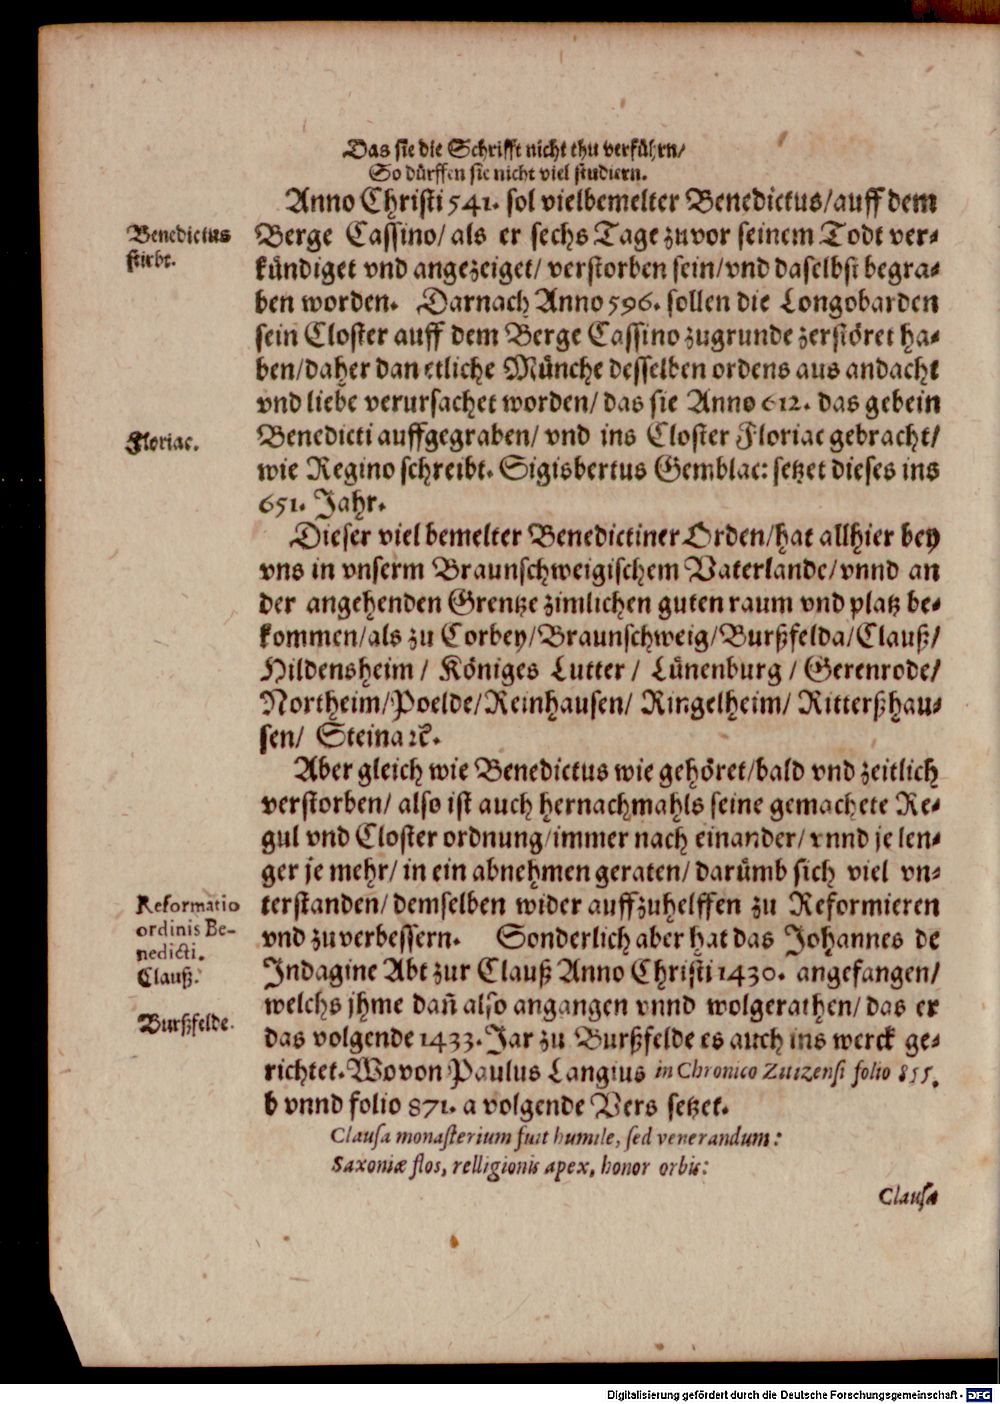 Das sie die Schrifft nicht thu verführn/
So dürffen sie nicht viel studiern.
Anno Christi 541. sol vielbemelter Benedictus/auff dem
Benedictus
stirbt.
Berge Cassino/ als er sechs Tage zuvor seinem Todt ver-
kündiget vnd angezeiget/ verstorben sein/vnd daselbst begra-
ben worden. Darnach Anno 596. sollen die Longobarden
sein Closter auff dem Berge Cassino zugrunde zerstöret ha-
ben/daher dan etliche Münche desselben ordens aus andacht
vnd liebe verursachet worden/ das sie Anno 612. das gebein
Floriac.
Benedicti auffgegraben/ vnd ins Closter Floriac gebracht/
wie Regino schreibt. Sigisbertus Gemblac: setzet dieses ins
651. Jahr.
Dieser viel bemelter Benedictiner Orden/hat allhier bey
vns in vnserm Braunschweigischem Vaterlande/vnnd an
der angehenden Grentze zimlichen guten raum vnd platz be-
kommen/als zu Corbey/Braunschweig/Burßfelda/Clauß/
Hildensheim / Königes Lutter / Lünenburg / Gerenrode/
Northeim/Poelde/Reinhausen/ Ringelheim/ Ritterßhau-
sen/ Steina ꝛc.
Aber gleich wie Benedictus wie gehöret/bald vnd zeitlich
verstorben/ also ist auch hernachmahls seine gemachete Re-
gul vnd Closter ordnung/immer nach einander/ vnnd je len-
ger je mehr/ in ein abnehmen geraten/ darümb sich viel vn-
Reformatio
ordinis Be-
nedicti.
Clauß.
terstanden/ demselben wider auffzuhelffen zu Reformieren
vnd zuverbessern. Sonderlich aber hat das Johannes de
Indagine Abt zur Clauß Anno Christi 1430. angefangen/
welchs jhme dañ also angangen vnnd wolgerathen/ das er
Burßfelde.
das volgende 1433. Jar zu Burßfelde es auch ins werck ge-
richtet. Wovon Paulus Langius in Chronico Zitizensi folio 855.
b vnnd folio 871. a volgende Vers setzet.
Clausa monasterium fuit humile, sed venerandum:
Saxoniæ flos, relligionis apex, honor orbis:
Clausa
Digitalisierung gefördert durch die Deutsche Forschungsgemeinschaft - DFG